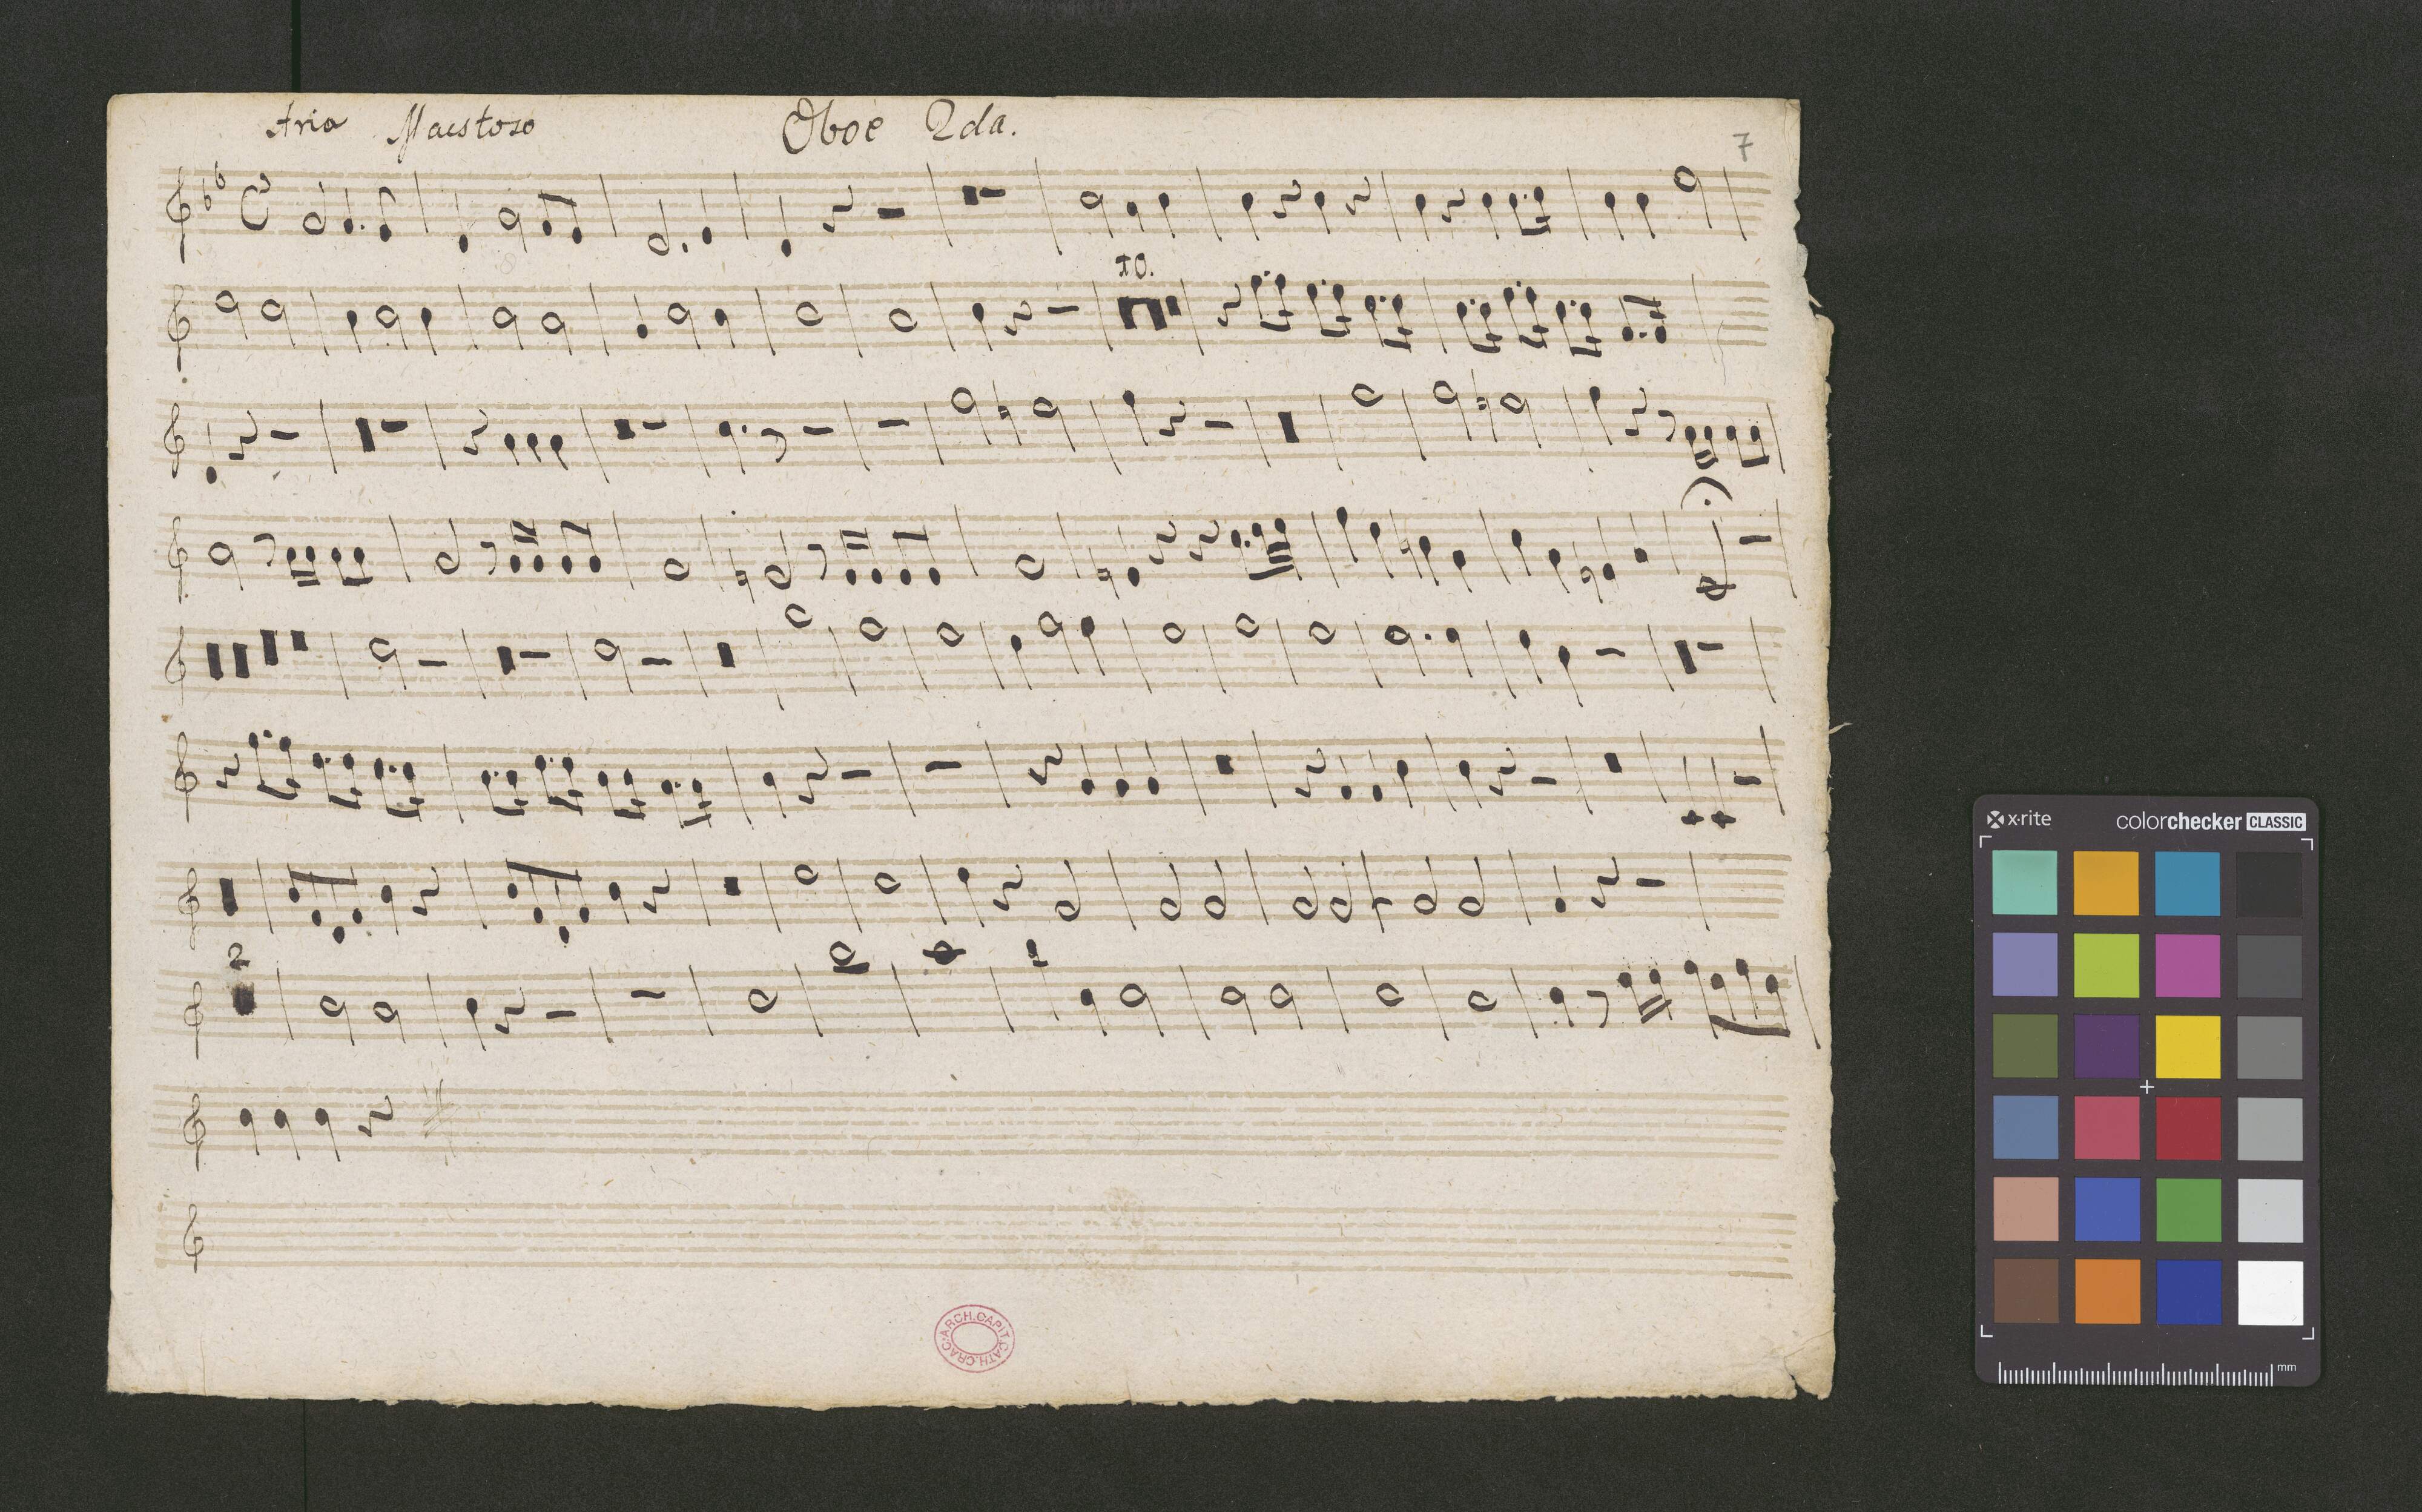 Aria Maestoso Oboe 2da.
7
10.
2
ARCH. CAPIT. CATH. CRAC.
x-rite
colorchecker CLASSIC
mm